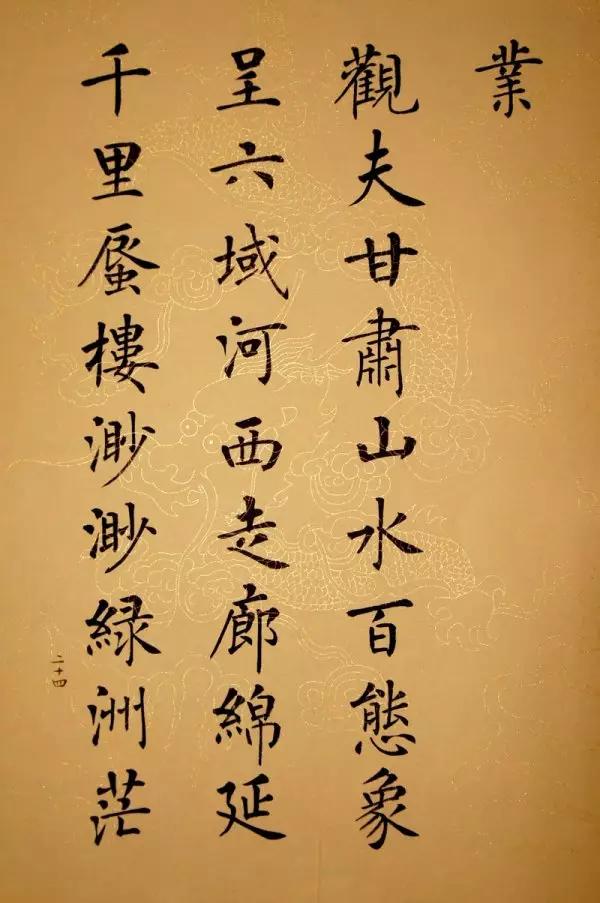 業
觀夫甘肅山水百態象
呈六域河西走廊綿延
千里蜃樓渺渺緑洲茫
二十四